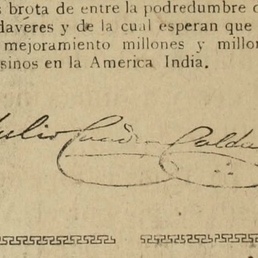 s brota de entre la podredumbre
dáveres y de la cual esperan que
mejoramiento millones y millon
sinos en la America India.
ulio Cuadros Caldas